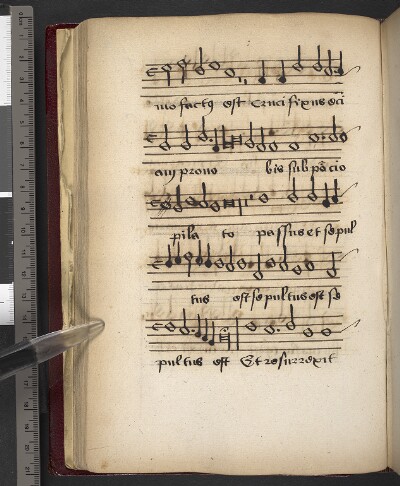 mo factꝯ est Crucifixus eci
am prono bis sub põcio
pila to passus et sepul
tus est sepultus est se
pultus est Et resurrexit